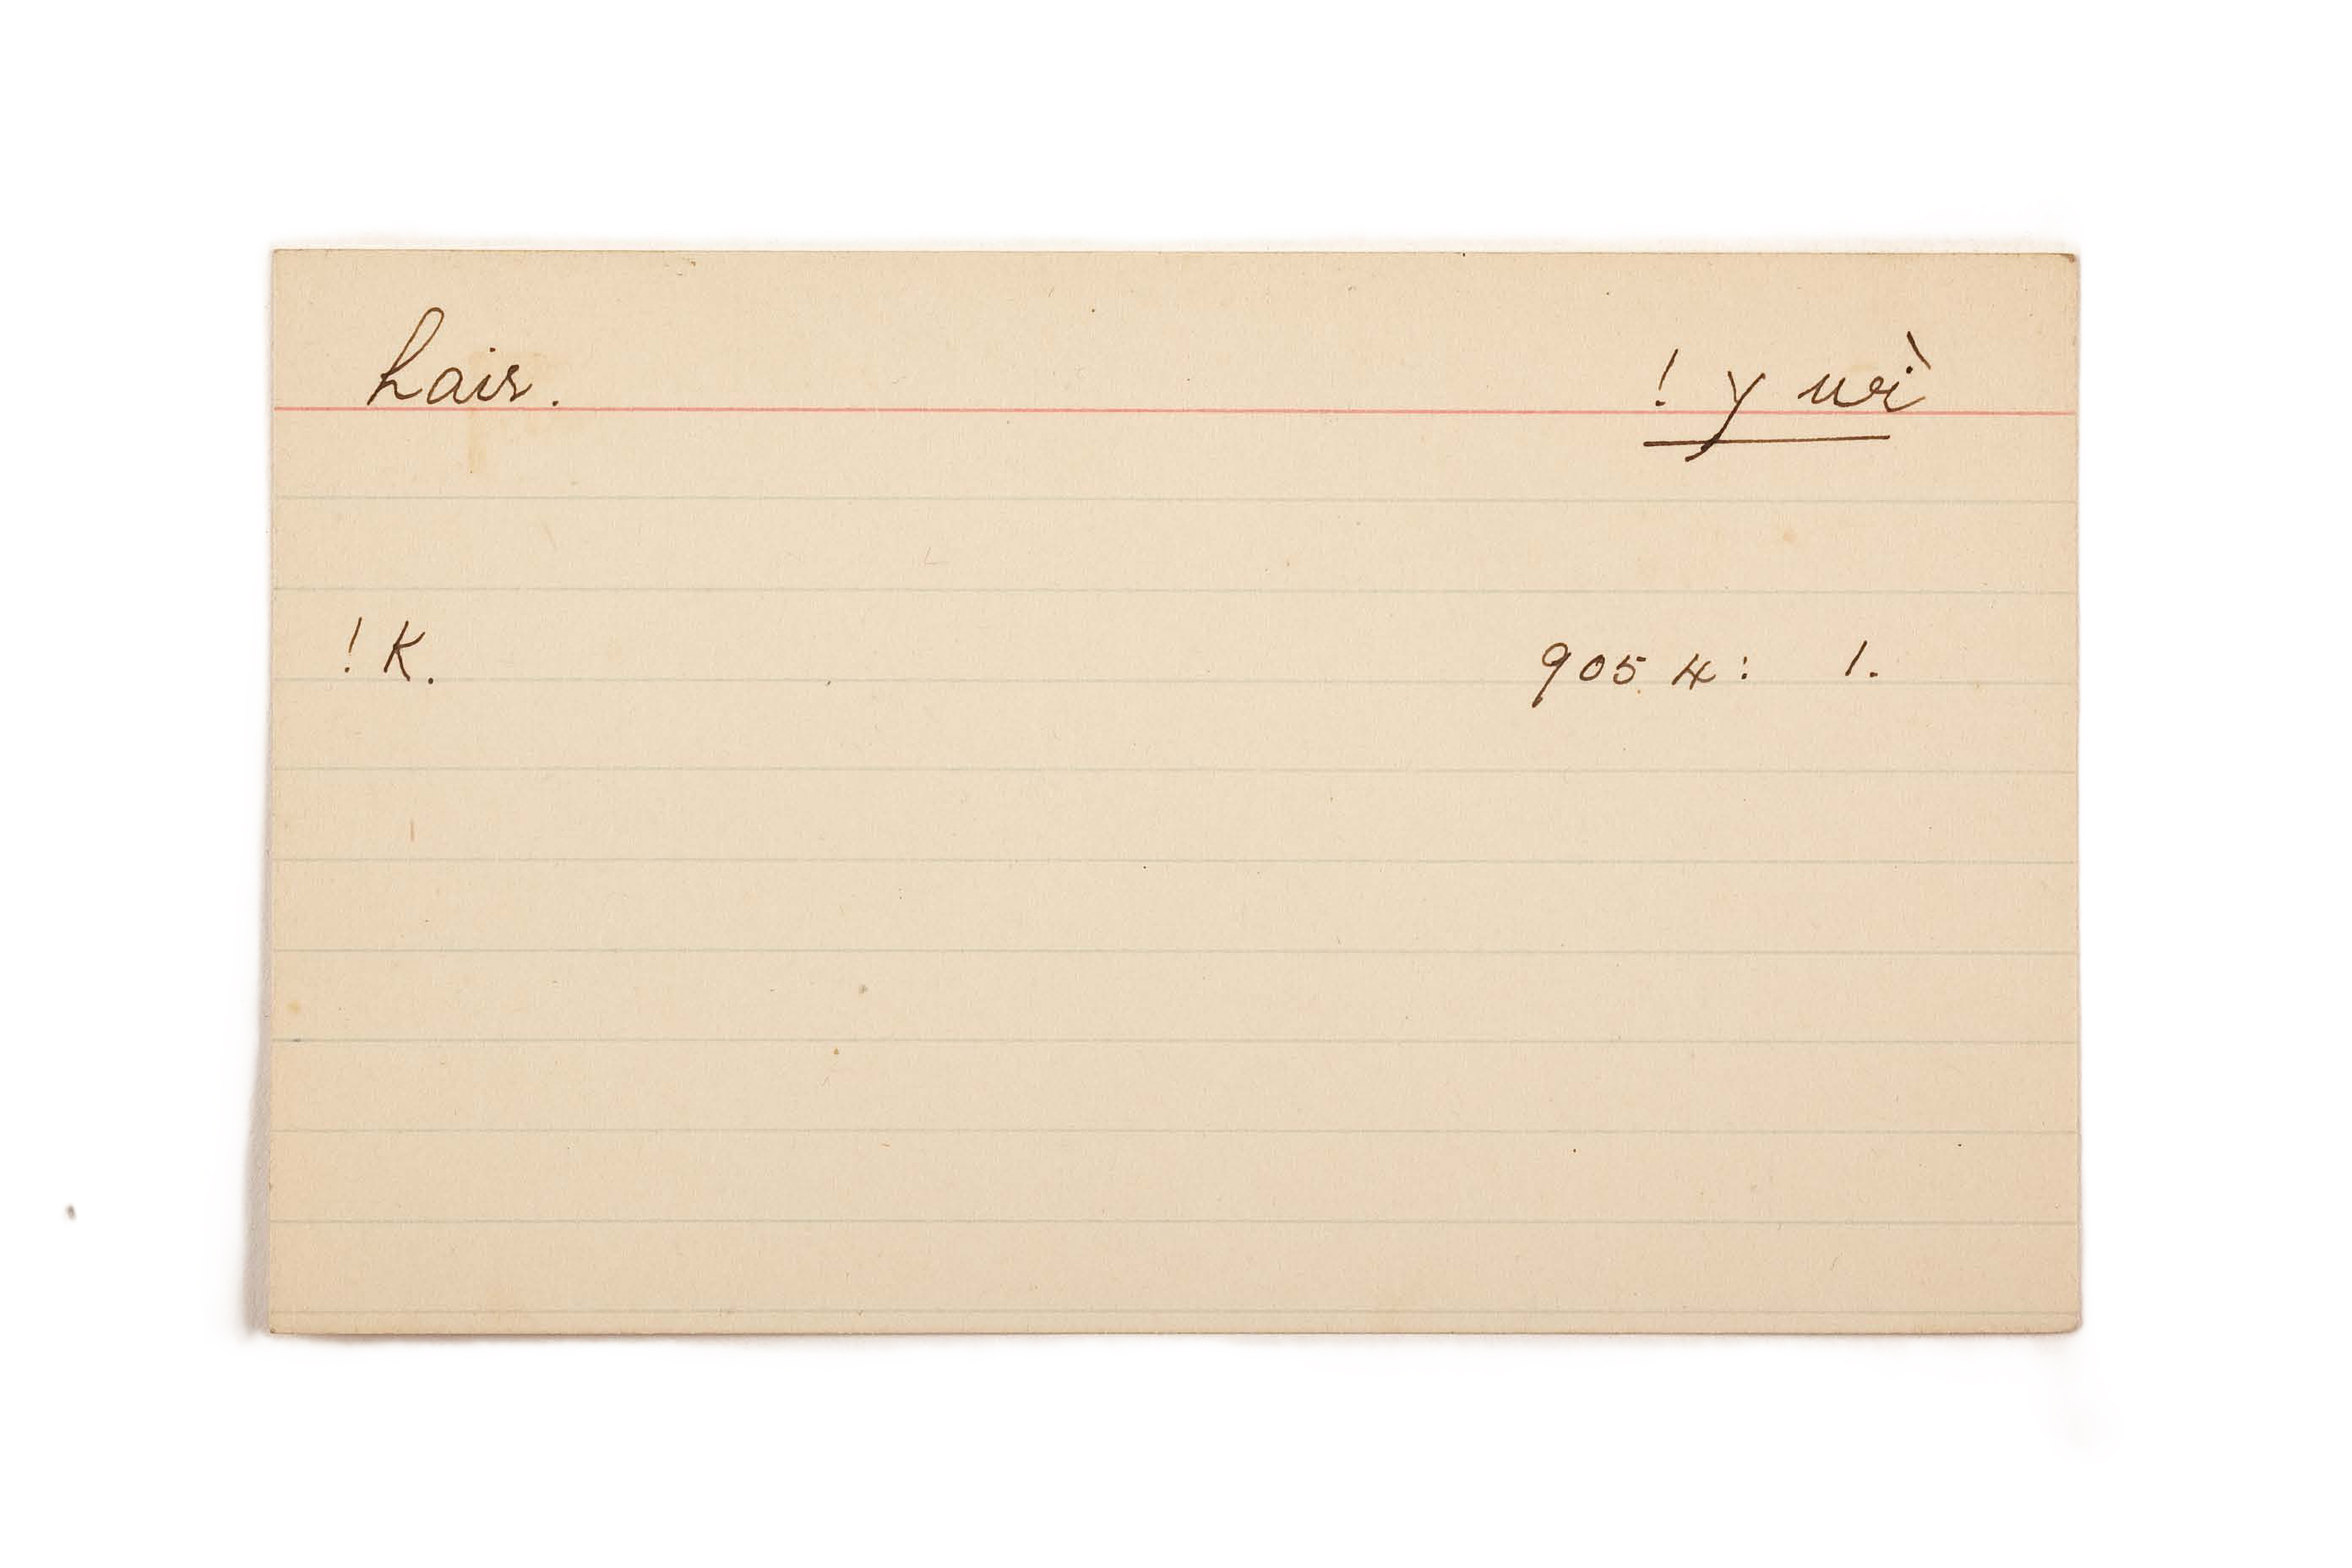 hair. ! y urì̖
! K. 9054: 1.